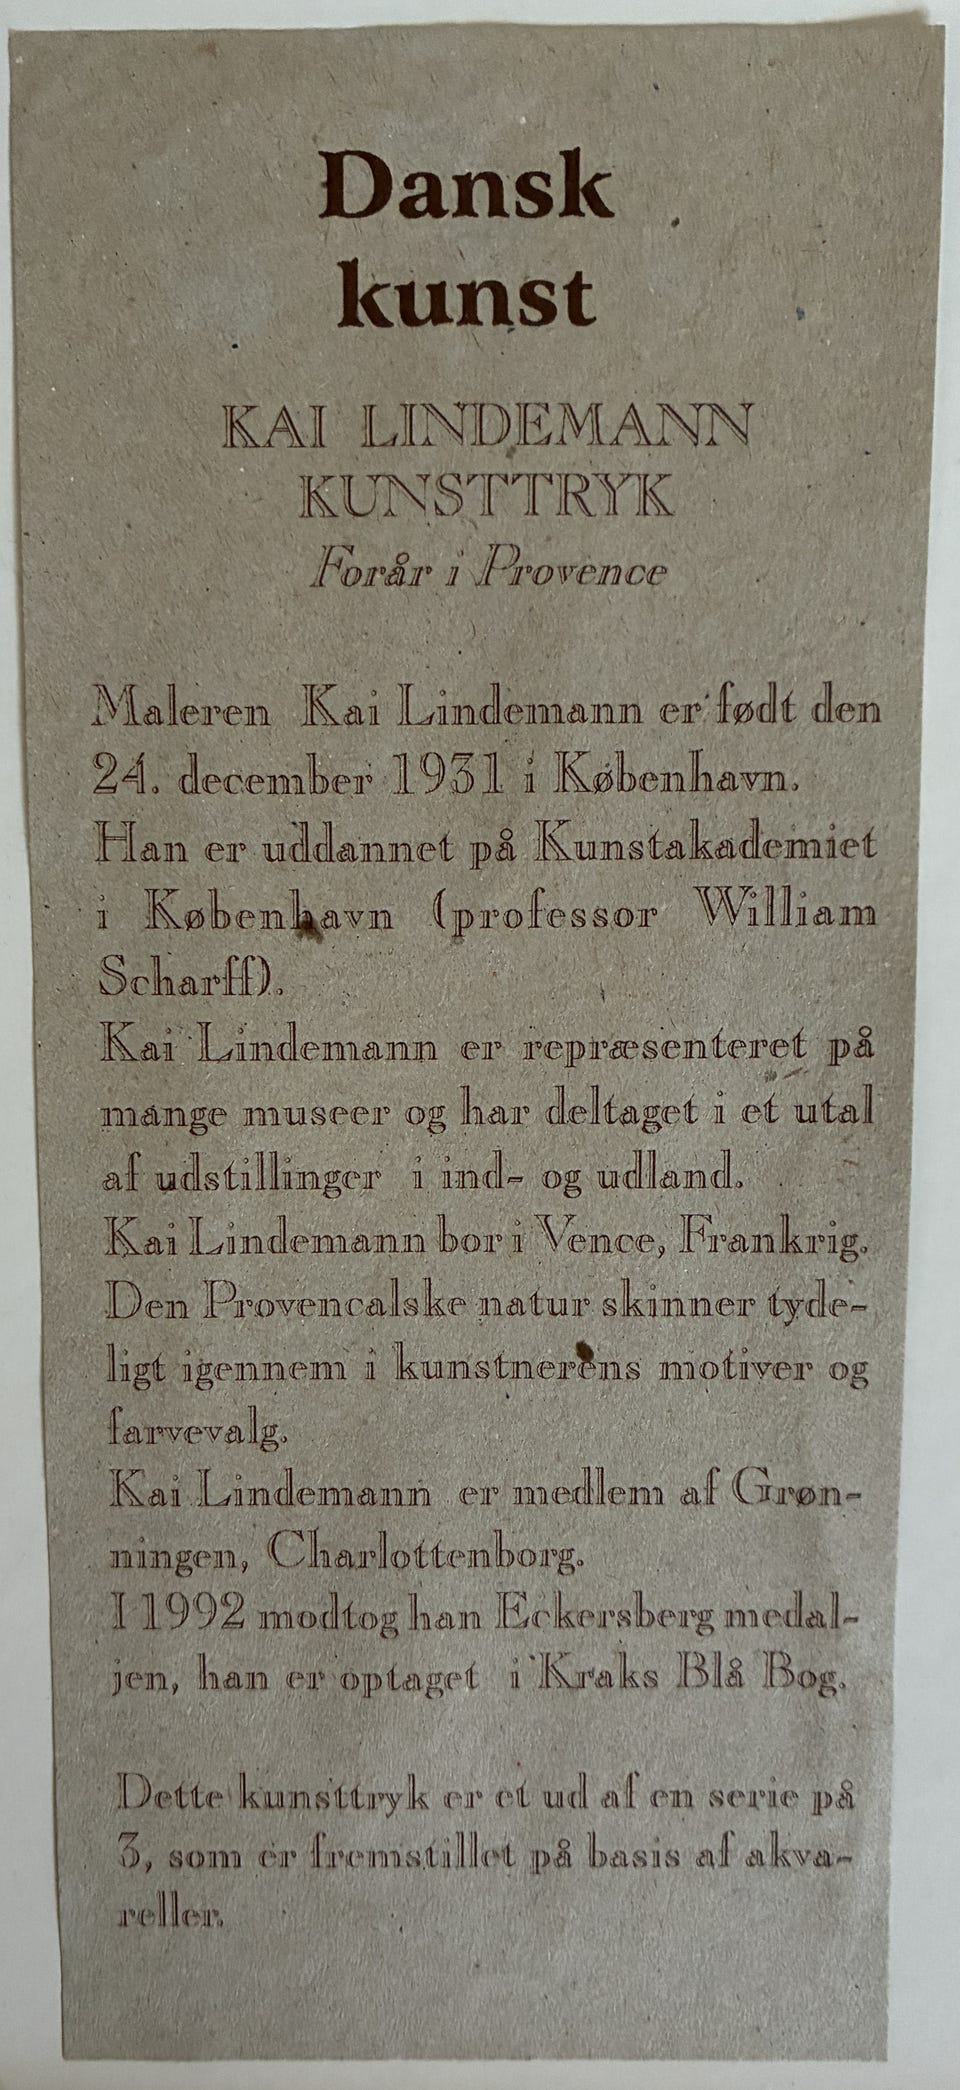 Dansk
kunst
KAI LINDEMANN
KUNSTTRYK
Forår i Provence
Maleren Kai Lindemann er født den
24. december 1931 i København.
Han er uddannet på Kunstakademiet
i København (professor William
Scharff).
Kai Lindemann er repræsenteret på
mange museer og har deltaget i et utal
af udstillinger i ind- og udland.
Kai Lindemann bor i Vence, Frankrig.
Den Provencalske natur skinner tyde-
ligt igennem i kunstnerens motiver og
farvevalg.
Kai Lindemann er medlem af Grøn-
ningen, Charlottenborg.
I 1992 modtog han Eckersberg medal-
jen, han er optaget i Kraks Blå Bog.
Dette kunsttryk er et ud af en serie på
3, som er fremstillet på basis af akva-
reller.